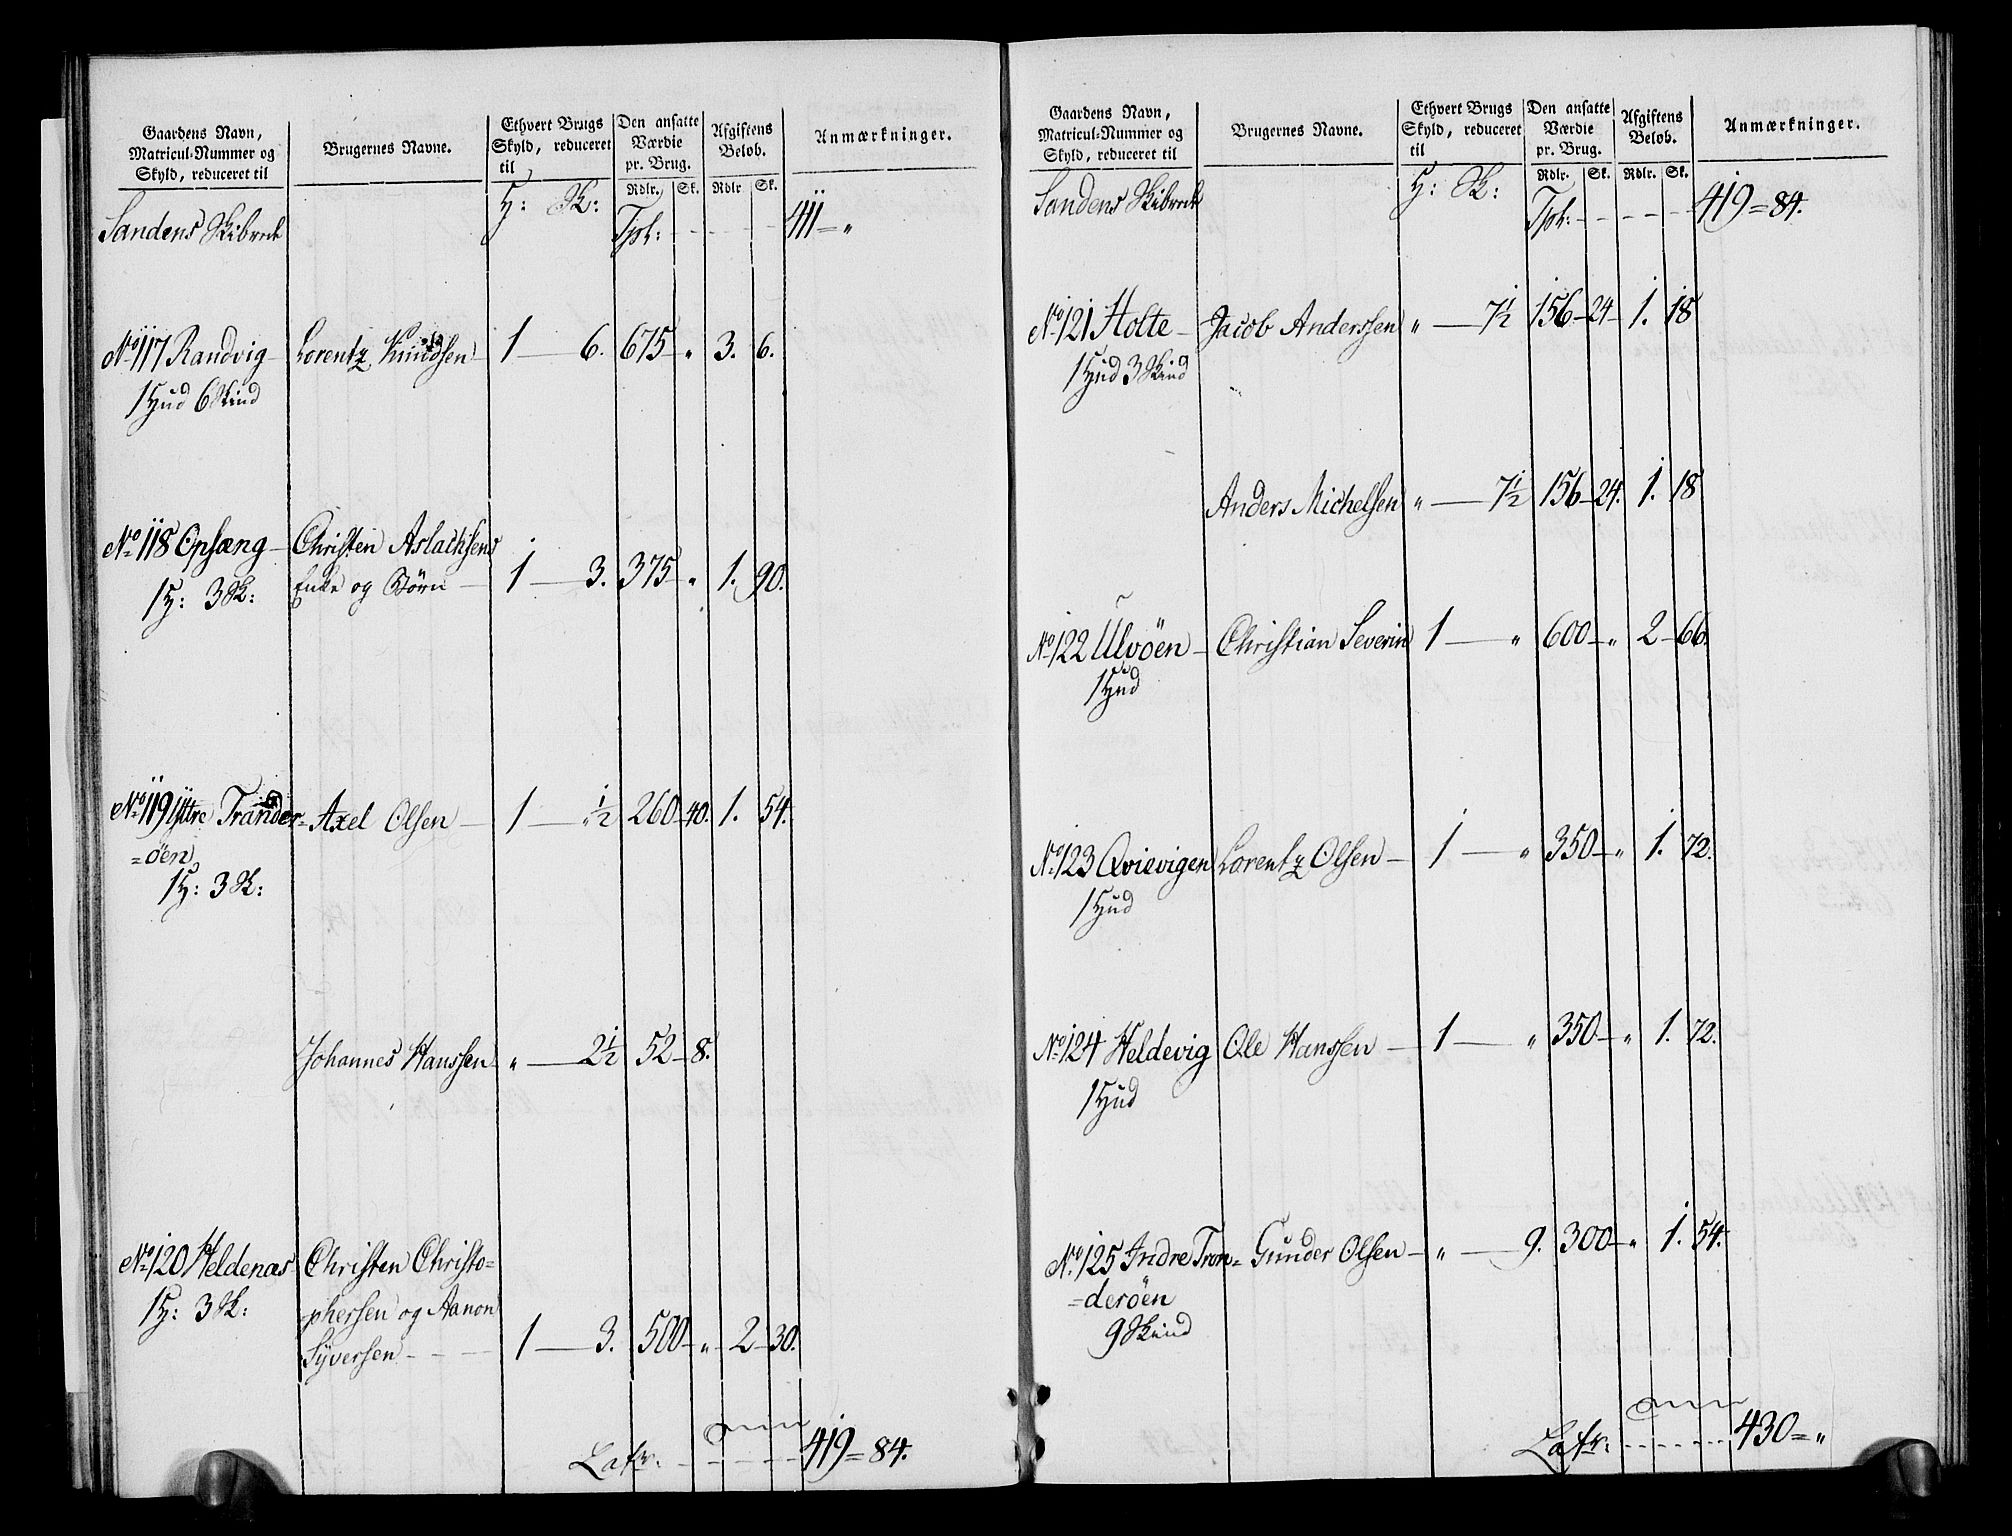 Gaardens Navn, Matricul-Nummer og Skyld, reduceret til | Brugernes Navne. | Ethvert Brugs Skyld, reduceret til | Den ansatte Værdie pr. Brug. | Afgiftens Beløb. | Anmærkninger.
Rdlr. Sk. Rdlr Sk.
Sandens Skibrede H: Sk: Tpt: - - - - 411 = "
No 117 Randvig - Lorentz Knudsen - 1 - 6. 675 - " 3. 6.
1 Hud 6 Skind
No 118 Opsæng - Christen Aslachsens
1 H: 3 Sk: Enke og Børn - 1 - 3. 375 - " 1. 90.
No 119 Yttre Trander= Axel Olsen - 1 - " ½ 260 - 40. 1. 54.
=öen
1 H: 3 Sk:
Johannes Hanssen - " - 2½ 52 - 8.
No 120 Heldenæs Christen Christo=
1 H: 3 Sk: phersen og Aanon
Syversen - - - 1 - 3. 500 - " 2 - 30.
Latr: - - - - 419 = 84.
Gaardens Navn, Matricul-Nummer og Skyld, reduceret til | Brugernes Navne. | Ethvert Brugs Skyld, reduceret til | Den ansatte Værdie pr. Brug. | Afgiftens Beløb. | Anmærkninger.
Rdlr. Sk. Rdlr. Sk.
Sandens Skibrede H: Sk: Tpt: - - - - 419 = 84.
No 121 Holte - Jacob Anderssen " - 7½ 156 - 24 - 1. 18
1 Hud 3 Skind
Anders Michelsen " - 7½ 156 - 24. 1. 18
No 122 Ulvöen - Christian Severin 1 - " 600 - " 2 - 66.
1 Hud
No 123 Qvievigen Lorentz Olsen - 1 - " 350 - " 1. 72.
1 Hud
No 124 Heldevig Ole Hanssen - 1 - " 350 - " 1. 72.
1 Hud
No 125 Indre Tron= Gunder Olsen - " - 9. 300 - " 1. 54.
=deröen
9 Skind
Latr: - - - - 430 = "